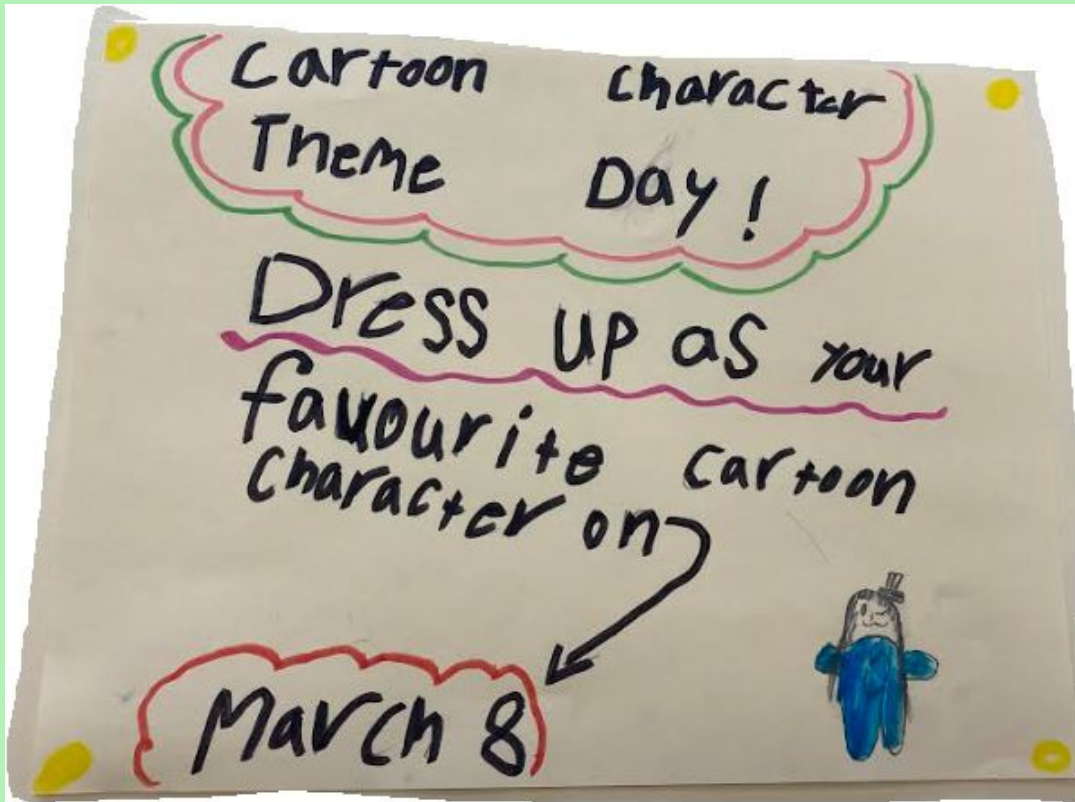 Cartoon Character
Theme Day!
Dress up as your
favourite cartoon
character on
March 8